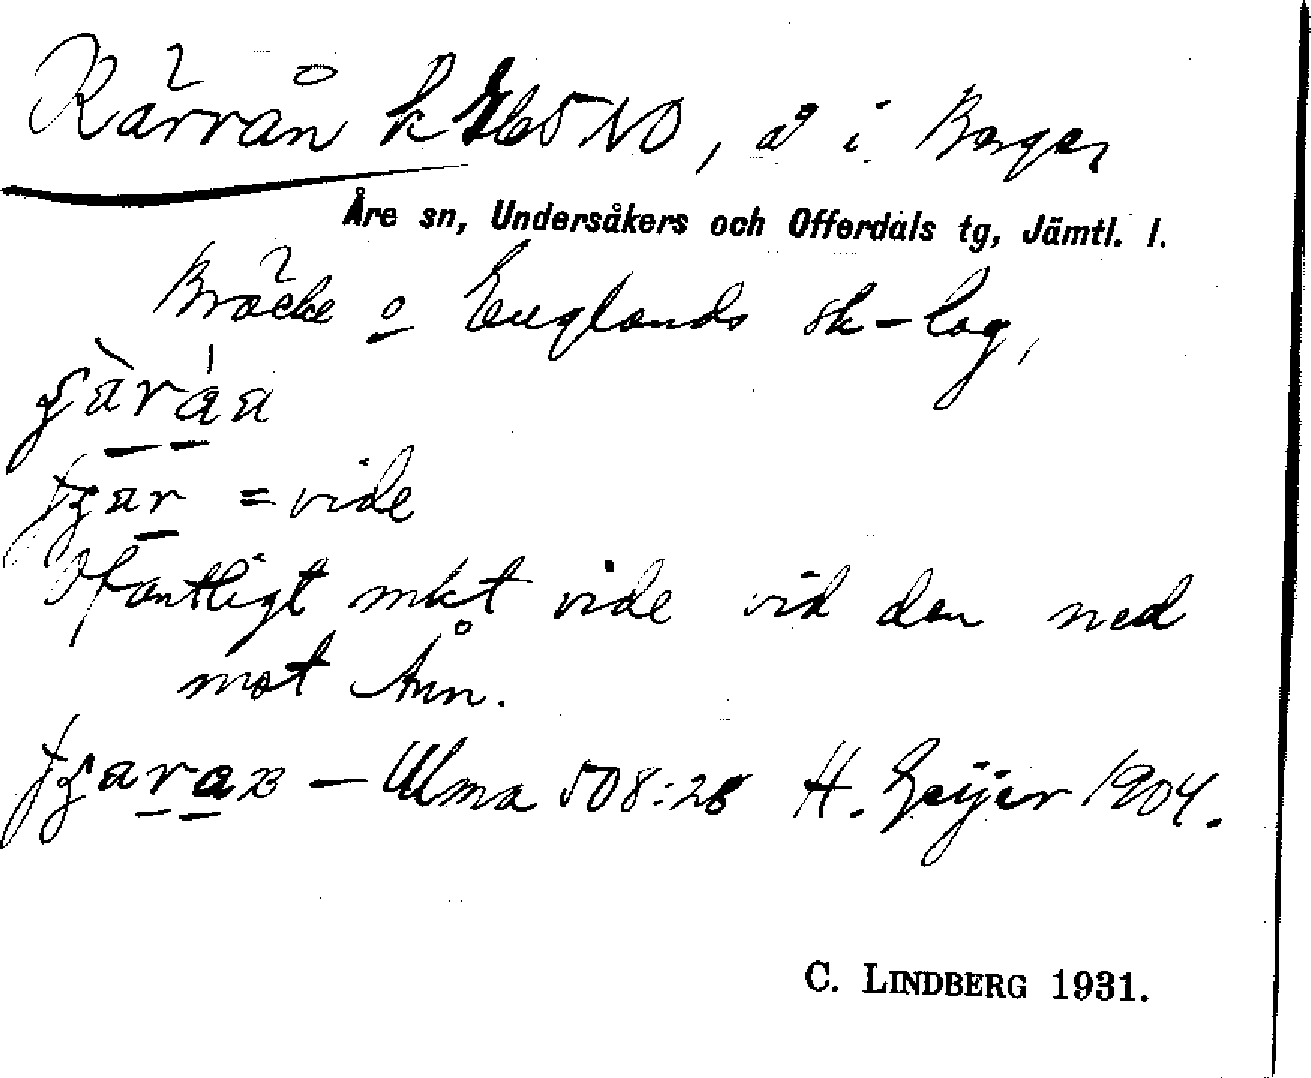 Kärrån k 265 NO, å i Bergen
Åre sn, Undersåkers och Offerdals tg, Jämtl. l.
Bräcke o Englands sk-lag,
= vide
Ofantligt mkt vide vid den ned
mot Ånn.
– Ulma 508:28 H. Geijer 1904.
C. LINDBERG 1931.